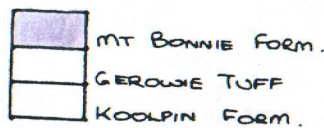 MT BONNIE FORM.
GEROWIE TUFF
KOOLPIN FORM.